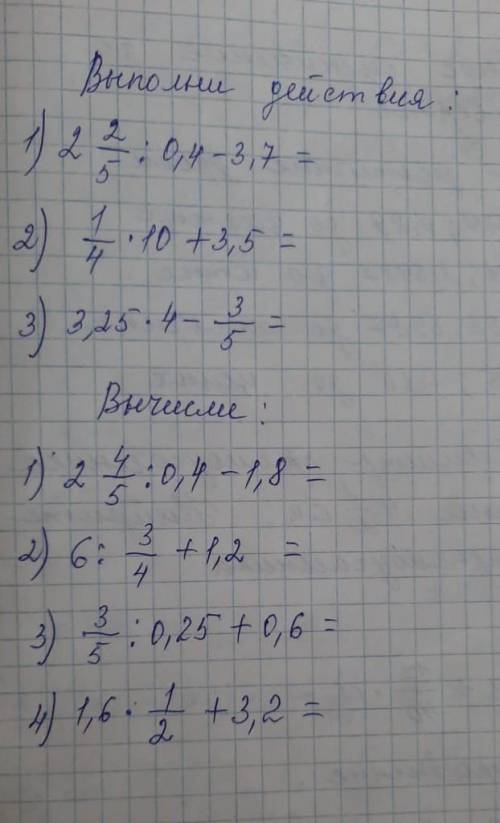 Выполни действия:
1) 2 2/5 : 0,4 - 3,7 =
2) 1/4 · 10 + 3,5 =
3) 3,25 · 4 - 3/5 =
Вычисли:
1) 2 4/5 : 0,4 - 1,8 =
2) 6 : 3/4 + 1,2 =
3) 3/5 : 0,25 + 0,6 =
4) 1,6 · 1/2 + 3,2 =